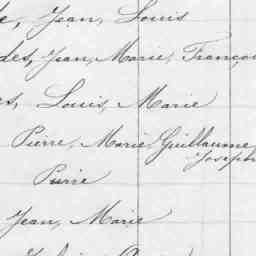 Jean, Louis
des, Jean, Marie, Franço
es, Louis, Marie
Pierre, Marie, Guillaume,
Joseph
Pierre
Jean, Marie